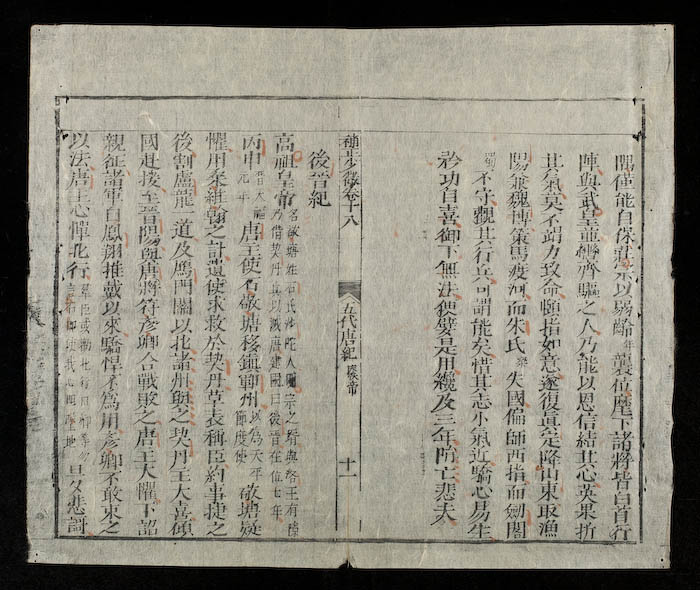 隅僅能自保莊宗以弱齡年襲位麾下諸將皆白首行
陣與武皇並轡齊驅之人乃能以恩信結其心英果折
其氣莫不竭力致命頤指如意遂復眞定降山東取漁
陽兼魏博策馬渡河而朱氏梁失國偏師西指而劒閣
蜀不守觀其行兵可謂能矣惜其志小氣近驕心易生
矜功自喜御下無法便嬖是用纔及三年隕亡悲夫
補少微卷十八
五代唐紀 廢帝
十一
後晉紀
高祖皇帝名敬塘姓石氏沙陀人明宗之壻與潞王有隙乃借契丹兵以滅唐建國曰後晉在位七年
丙申晉天福元年唐主使石敬塘移鎭鄆州以爲天平節度使敬塘疑
懼用桑維翰之計遣使求救於契丹草表稱臣約事捷之
後割盧龍一道及鴈門關以北諸州與之契丹主大喜傾
國赴援至晉陽與唐將符彥卿合戰敗之唐主大懼下詔
親征諸軍自鳳翔推戴以來驕悍不爲用彥卿不敢束之
以法唐主心憚北行羣臣或勸北行則曰卿勿言石郎使我心膽墮地旦夕悲歌